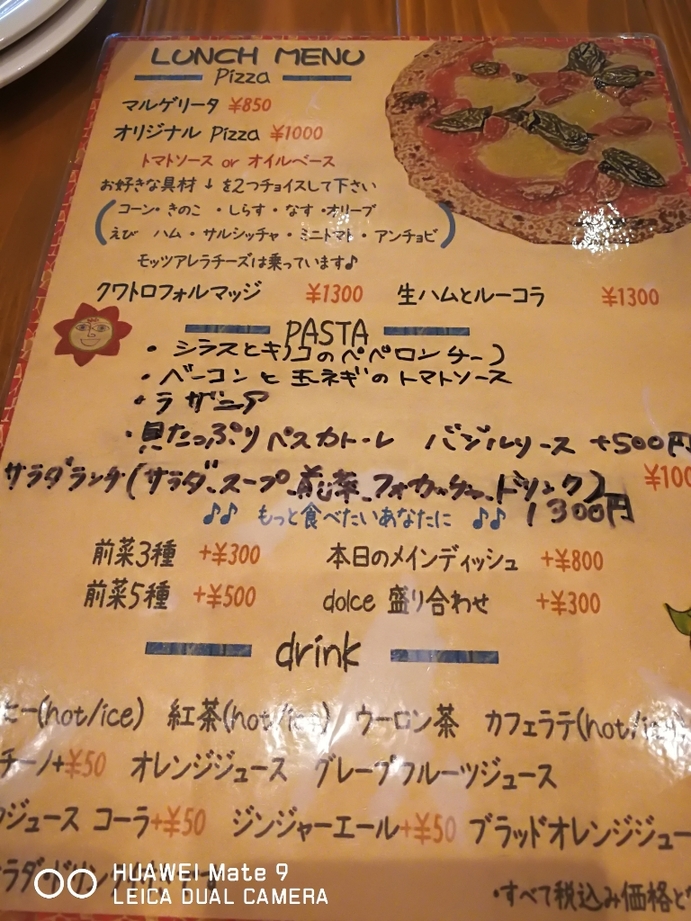 LUNCH MENU
Pizza
マルゲリータ ¥850
オリジナル Pizza ¥1000
トマトソース or オイルベース
お好きな具材 ↓ を2つチョイスして下さい
(コーン・きのこ ・しらす・なす・オリーブ
えび ハム・サルシッチャ・ミニトマト・アンチョビ)
モッツアレラチーズは乗っています♪
クワトロフォルマッジ ¥1300 生ハムとルーコラ ¥1300
PASTA
・シラスとキノコのペペロンチーノ
・ベーコンと玉ネギのトマトソース
・ラザニア
・貝たっぷりペスカトーレ バジルソース +500円
サラダランチ(サラダ、スープ、前菜、フォカッチャ、ドリンク) ¥100
♪♪ もっと食べたいあなたに ♪♪ 1300円
前菜3種 +¥300 本日のメインディッシュ +¥800
前菜5種 +¥500 dolce 盛り合わせ +¥300
drink
ヒー(hot/ice) 紅茶(hot/ice) ウーロン茶 カフェラテ(hot/
チーノ+¥50 オレンジジュース グレープフルーツジュース
ジュース コーラ+¥50 ジンジャーエール+¥50 ブラッドオレンジジュー
・すべて税込み価格と
HUAWEI Mate 9
LEICA DUAL CAMERA